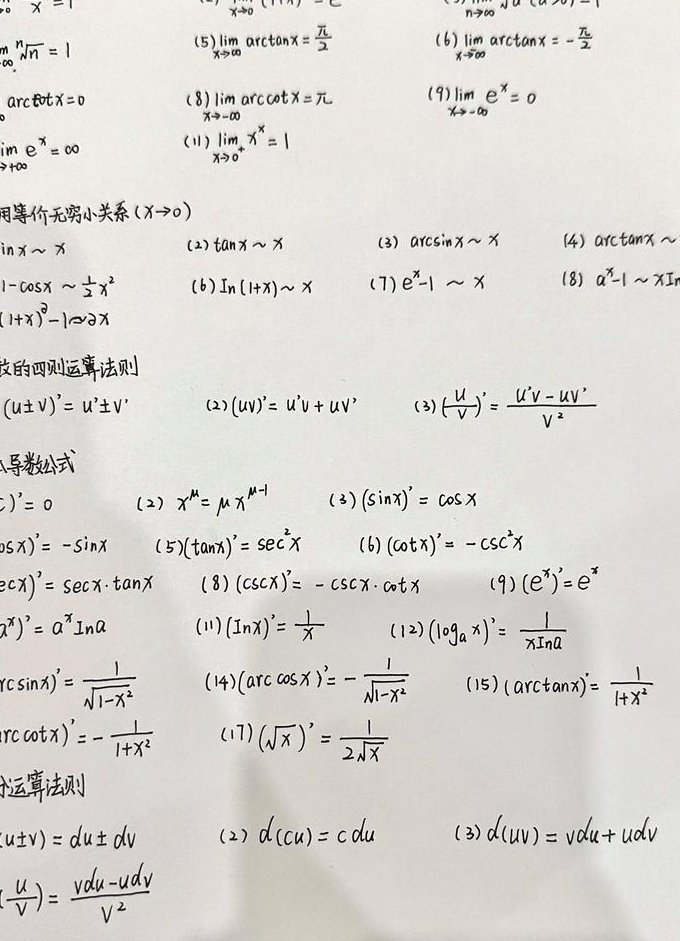 x =1 x→0 (1+x) = e n→∞ √a (a>0) =1
ⁿ√n = 1 (5) lim x→∞ arctanx = π/2 (6) lim x→∞ arctanx = -π/2
arccotx=0 (8) lim x→-∞ arccotx = π (9) lim x→-∞ eˣ = 0
im eˣ = ∞ →+∞ (11) lim x→0⁺ xˣ = 1
用等价无穷小关系(x→0)
inx ~ x (2) tanx ~ x (3) arcsinx ~ x (4) arctanx ~
1-cosx ~ 1/2 x² (6) In(1+x) ~ x (7) eˣ-1 ~ x (8) aˣ-1 ~ xIn
(1+x)^∂-1~∂x
数的四则运算法则
(u±v)'= u'±v' (2) (uv)'= u'v + uv' (3) (u/v)' = (u'v - uv')/v²
导数公式
c)'= 0 (2) x^μ = μx^(μ-1) (3) (sinx)' = cosx
osx)'= -sinx (5)(tanx)'= sec²x (6) (cotx)'= -csc²x
ecx)'= secx·tanx (8) (cscx)'= -cscx·cotx (9) (eˣ)'=eˣ
aˣ)'= aˣIna (11) (Inx)'= 1/x (12) (logₐx)'= 1/(xIna)
rcsinx)'= 1/√(1-x²) (14)(arccosx)'= - 1/√(1-x²) (15) (arctanx)'= 1/(1+x²)
arccotx)'= - 1/(1+x²) (17) (√x)' = 1/(2√x)
分运算法则
(u±v) = du± dv (2) d(cu) = cdu (3) d(uv) = vdu+udv
(u/v) = (vdu-udv)/v²